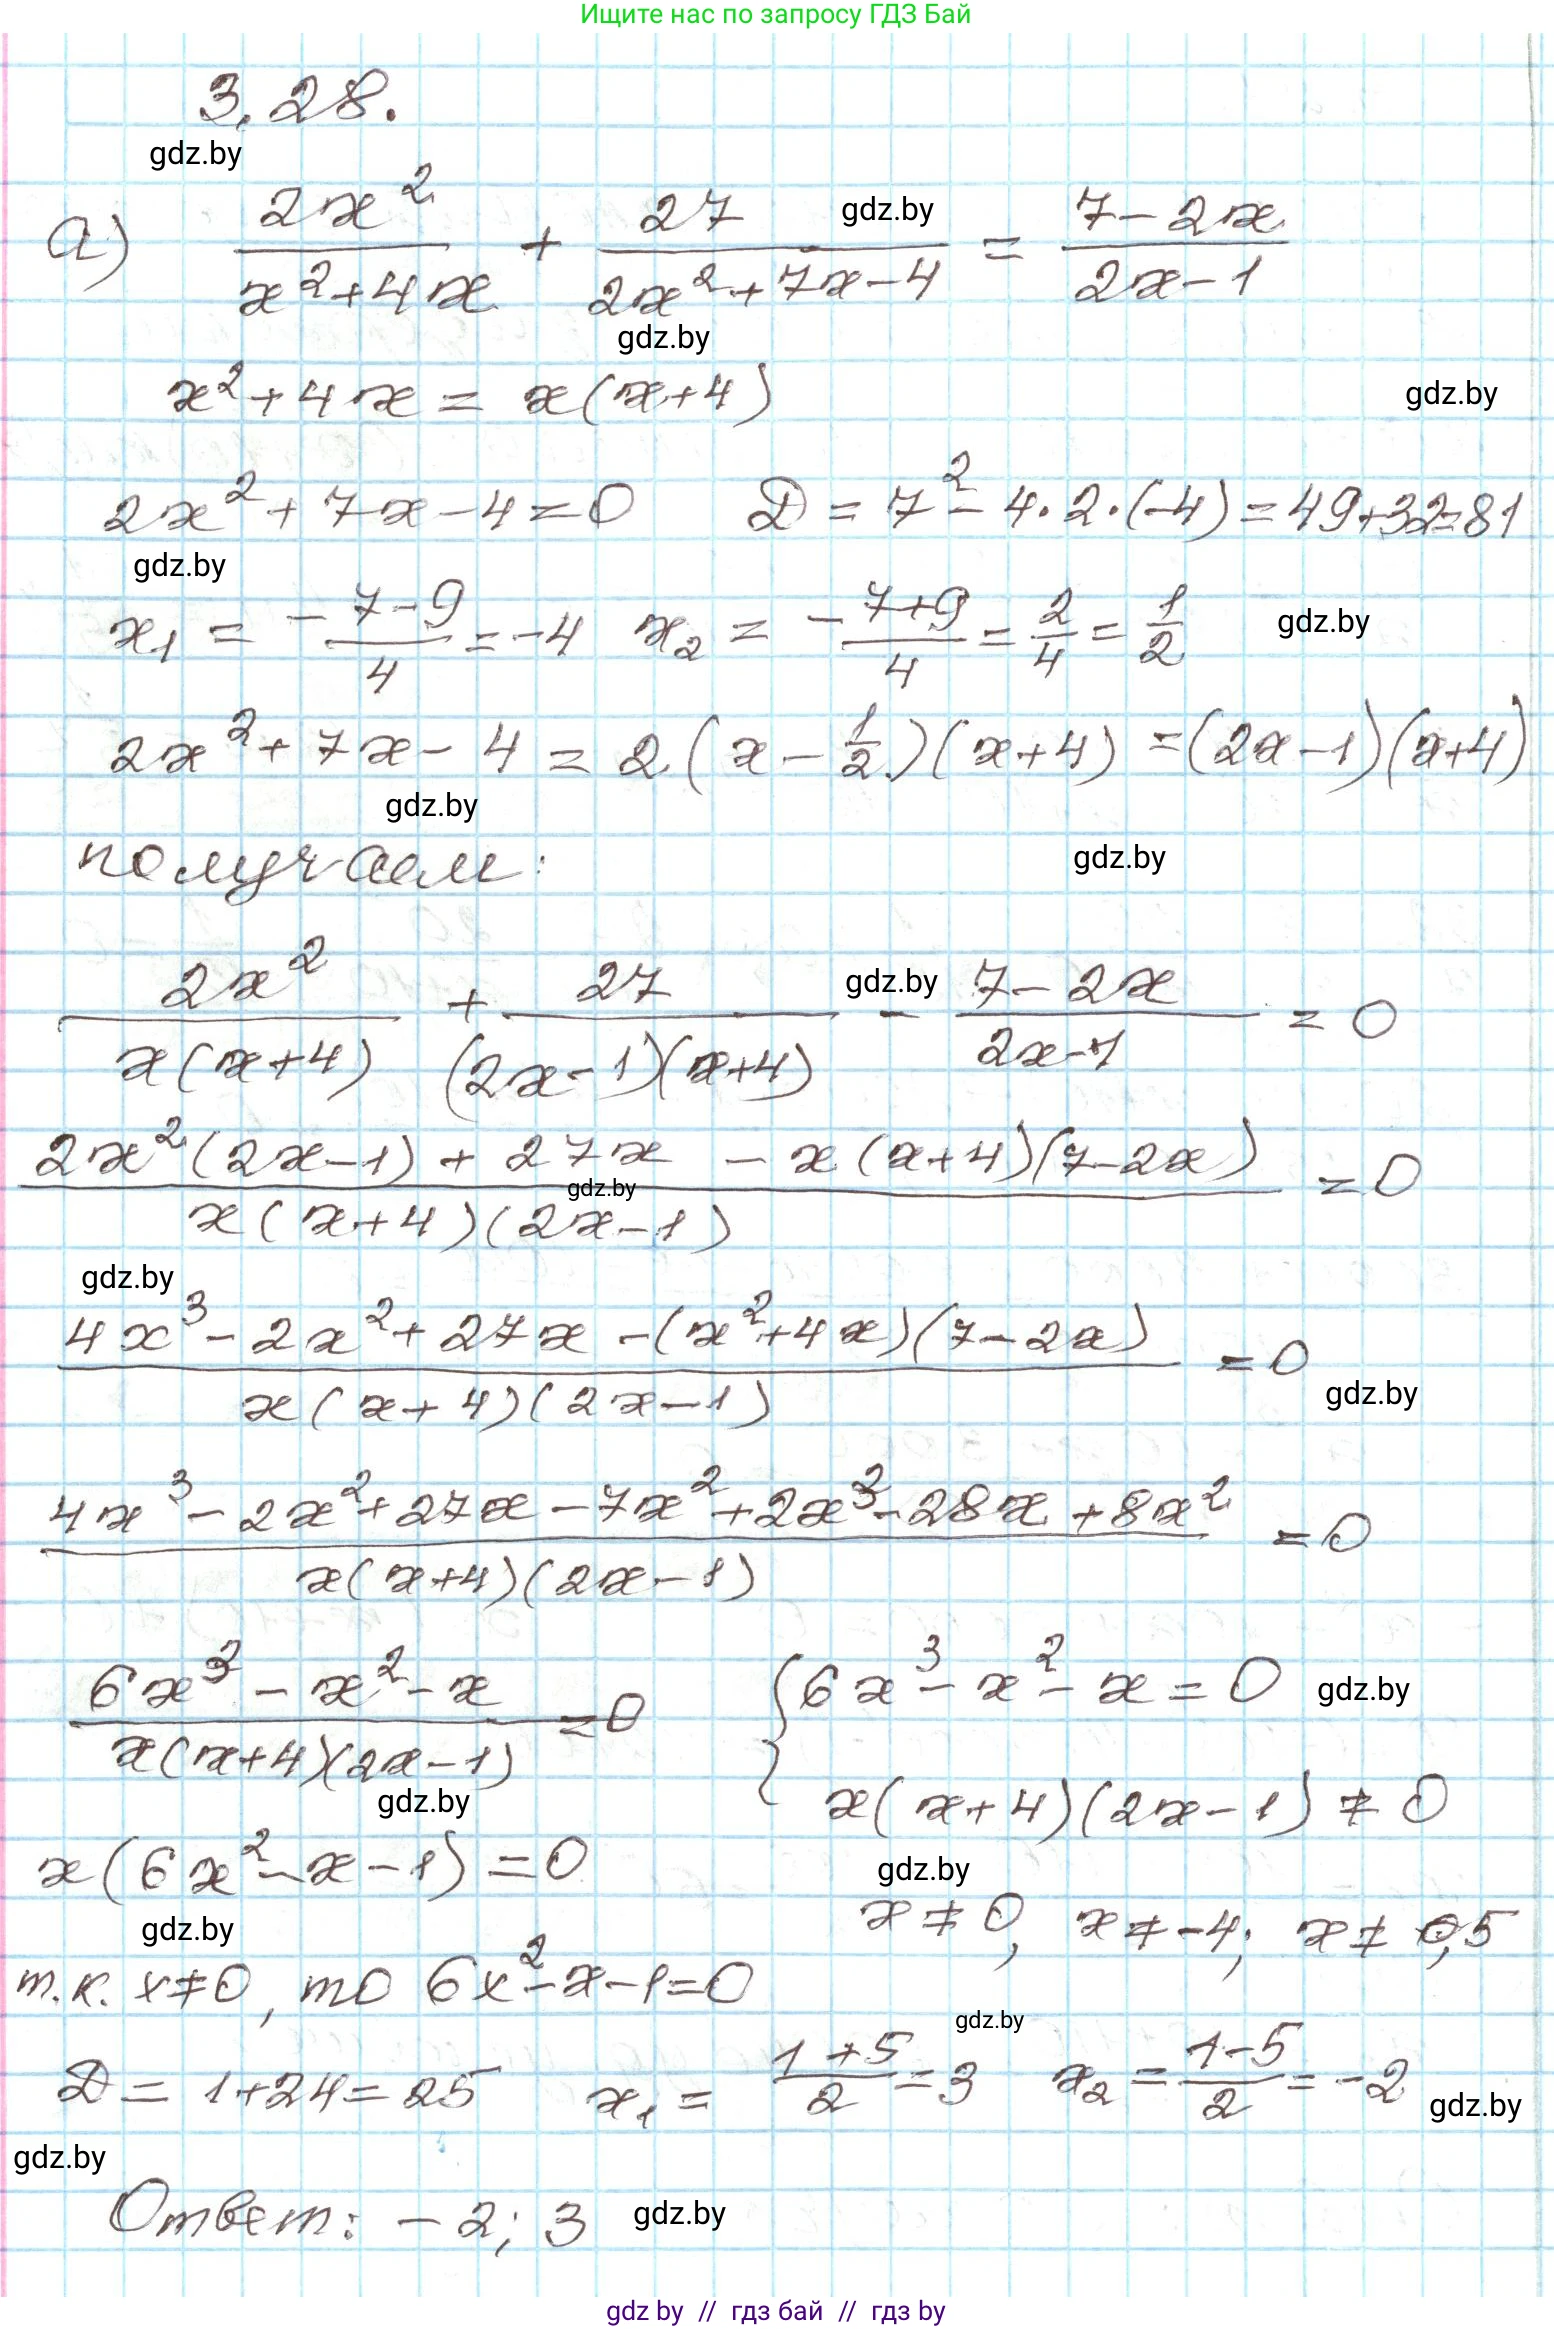 Ищите нас по запросу ГДЗ Бай
3.28.
gdz.by
а) \frac{2x^2}{x^2+4x} + \frac{27}{2x^2+7x-4} = \frac{7-2x}{2x-1} gdz.by
gdz.by
x^2+4x = x(x+4) gdz.by
2x^2+7x-4=0 D = 7^2-4·2·(-4)=49+32=81
gdz.by
x_1 = -\frac{7-9}{4} = -4 x_2 = -\frac{7+9}{4} = \frac{2}{4} = \frac{1}{2} gdz.by
2x^2+7x-4 = 2(x-\frac{1}{2})(x+4) = (2x-1)(x+4)
gdz.by
получаем: gdz.by
\frac{2x^2}{x(x+4)} + \frac{27}{(2x-1)(x+4)} - \frac{7-2x}{2x-1} = 0 gdz.by
\frac{2x^2(2x-1)+27x-x(x+4)(7-2x)}{x(x+4)(2x-1)} = 0 gdz.by
gdz.by
\frac{4x^3-2x^2+27x-(x^2+4x)(7-2x)}{x(x+4)(2x-1)} = 0
gdz.by
\frac{4x^3-2x^2+27x-7x^2+2x^3-28x+8x^2}{x(x+4)(2x-1)} = 0
\frac{6x^3-x^2-x}{x(x+4)(2x-1)} = 0 { 6x^3-x^2-x=0 gdz.by
gdz.by x(x+4)(2x-1) ≠ 0
x(6x^2-x-1)=0 gdz.by
gdz.by x≠0, x≠-4; x≠0,5
т.к. x≠0, то 6x^2-x-1=0
gdz.by
D = 1+24=25 x_1 = \frac{1+5}{2} = 3 x_2 = \frac{1-5}{2} = -2 gdz.by
gdz.by
Ответ: -2; 3 gdz.by
gdz by // гдз бай // гдз by